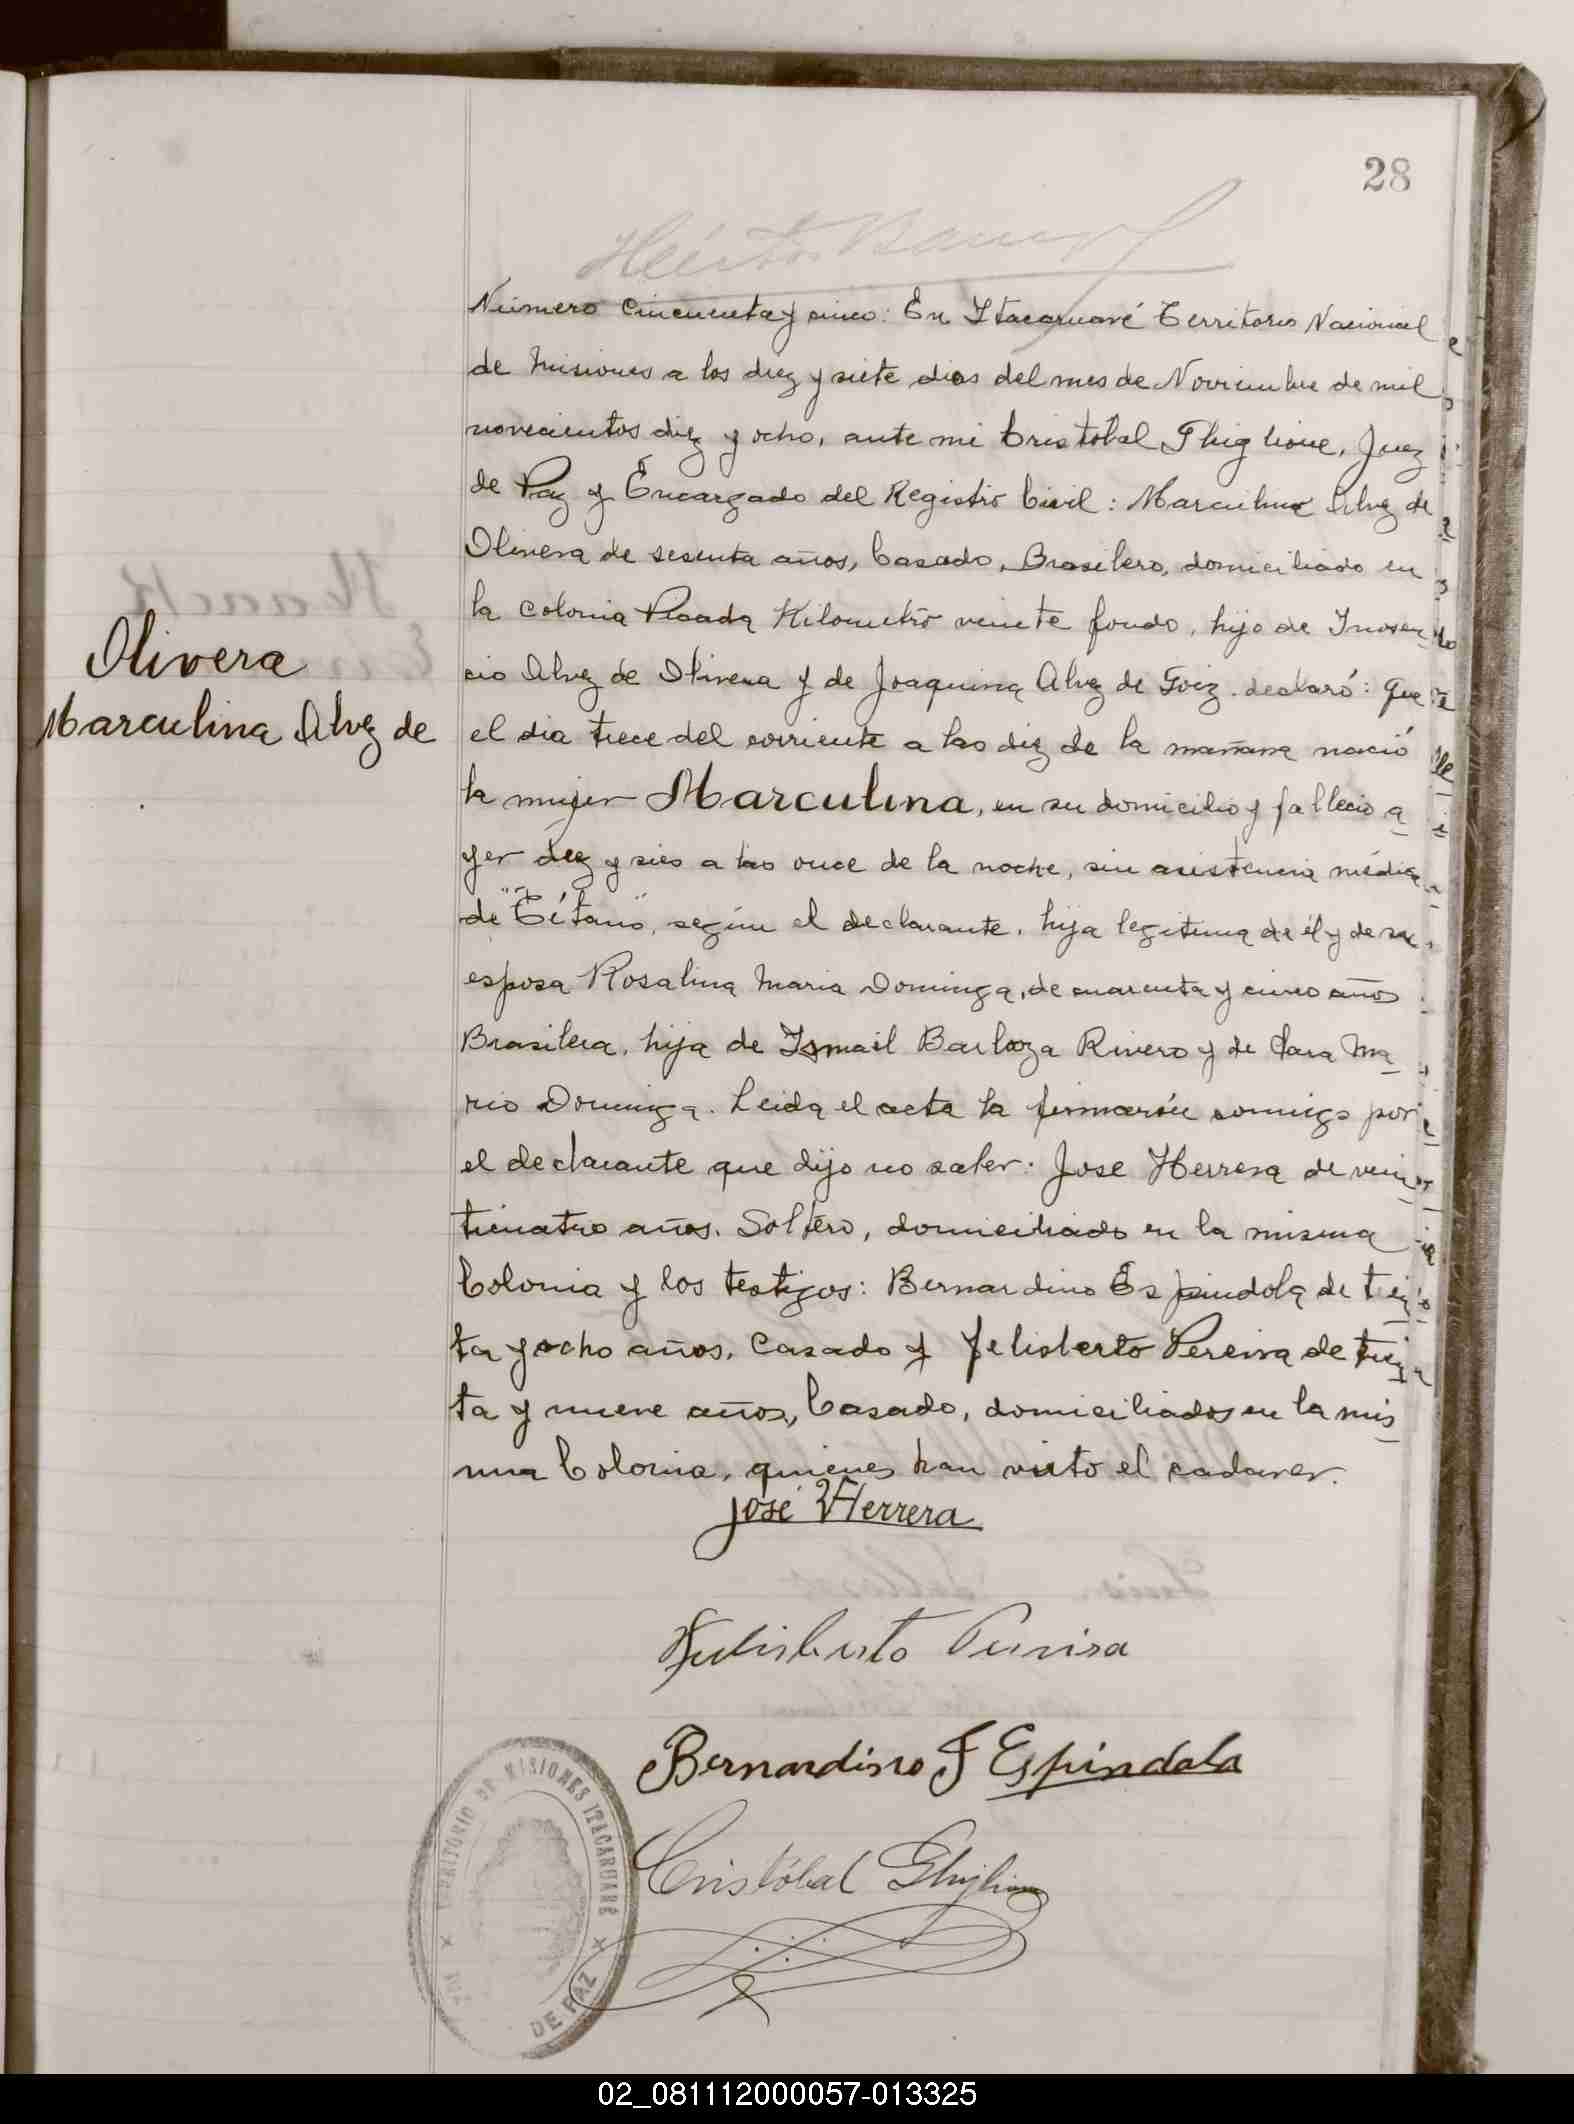 28
Número cincuenta y cinco: En Itacaruaré Territorio Nacional
de Misiones a los diez y siete dias del mes de Noviembre de mil
novecientos diez y ocho, ante mi Cristobal Ghiglione, Juez
de Paz y Encargado del Registro Civil: Marculino Alvez de
Olivera de sesenta años, Casado, Brasilero, domiciliado en
la Colonia Picada Kilometro veinte fondo, hijo de Inosen-
cio Alvez de Olivera y de Joaquina Alvez de Goiz. declaró: que
Olivera
Marculina Alvez de
el dia trece del corriente a las diez de la mañana nació
la mujer Marculina, en su domicilio y fallecio a
yer diez y seis a las once de la noche, sin asistencia médica
de "Tétano", según el declarante, hija legitima de él y de su
esposa Rosalina Maria Dominga, de cuarenta y cinco años
Brasilera, hija de Ismail Barboza Rivero y de Clara Ma
ria Dominga. Leida el acta la firmarón conmigo por
el declarante que dijo no saber: Jose Herrera de vein
ticuatro años. Soltero, domiciliado en la misma
Colonia y los testigos: Bernardino Espindola de trein
ta y ocho años. Casado y Felisberto Pereira de trein
ta y nueve años, Casado, domiciliados en la mis
ma Colonia, quienes han visto el cadaver.
José Herrera
Felisberto Pereira
Bernardino F Espindola
Cristóbal Ghiglione
TERRITORIO DE MISIONES ITACARUARÉ
DE PAZ
02_081112000057-013325